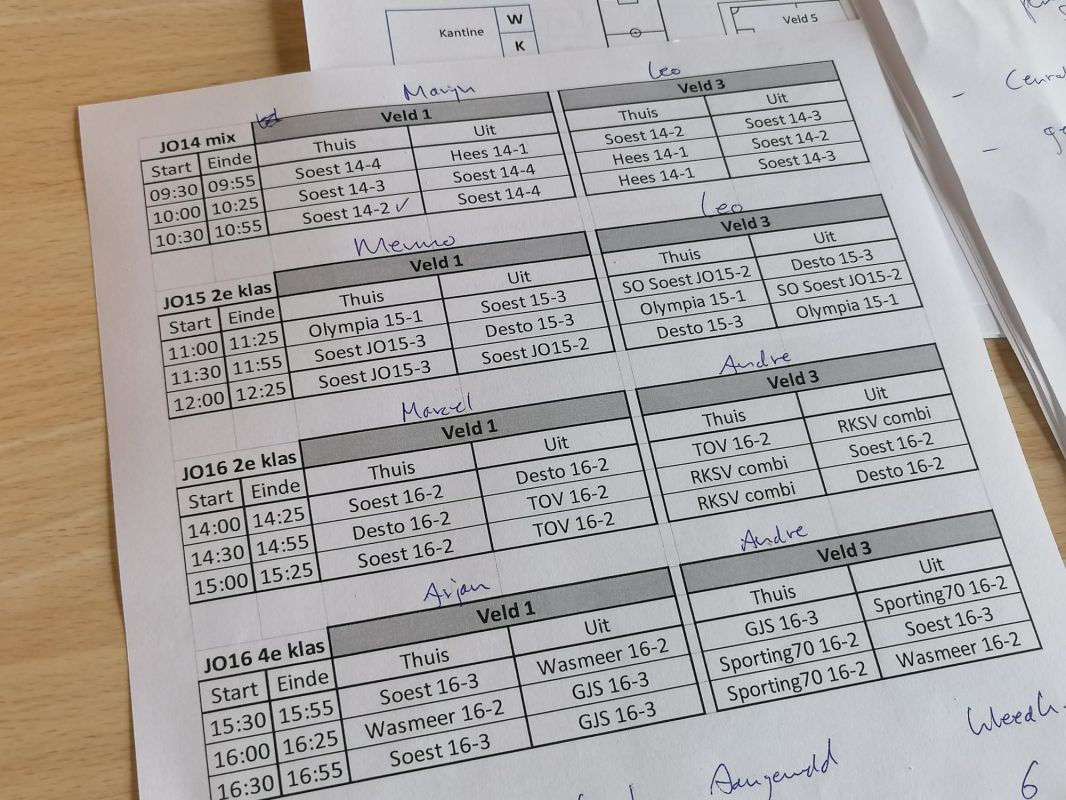 Kantine W
K
Veld 5
Marijn Leo
JO14 mix Veld 1 Veld 3
Start Einde Thuis Uit Thuis Uit
09:30 09:55 Soest 14-4 Hees 14-1 Soest 14-2 Soest 14-3
10:00 10:25 Soest 14-3 Soest 14-4 Hees 14-1 Soest 14-2
10:30 10:55 Soest 14-2 ✓ Soest 14-4 Hees 14-1 Soest 14-3
Menno Leo
JO15 2e klas Veld 1 Veld 3
Start Einde Thuis Uit Thuis Uit
11:00 11:25 Olympia 15-1 Soest 15-3 SO Soest JO15-2 Desto 15-3
11:30 11:55 Soest JO15-3 Desto 15-3 Olympia 15-1 SO Soest JO15-2
12:00 12:25 Soest JO15-3 Soest JO15-2 Desto 15-3 Olympia 15-1
Marcel Andre
JO16 2e klas Veld 1 Veld 3
Start Einde Thuis Uit Thuis Uit
14:00 14:25 Soest 16-2 Desto 16-2 TOV 16-2 RKSV combi
14:30 14:55 Desto 16-2 TOV 16-2 RKSV combi Soest 16-2
15:00 15:25 Soest 16-2 TOV 16-2 RKSV combi Desto 16-2
Arjan Andre
JO16 4e klas Veld 1 Veld 3
Start Einde Thuis Uit Thuis Uit
15:30 15:55 Soest 16-3 Wasmeer 16-2 GJS 16-3 Sporting70 16-2
16:00 16:25 Wasmeer 16-2 GJS 16-3 Sporting70 16-2 Soest 16-3
16:30 16:55 Soest 16-3 GJS 16-3 Sporting70 16-2 Wasmeer 16-2
6